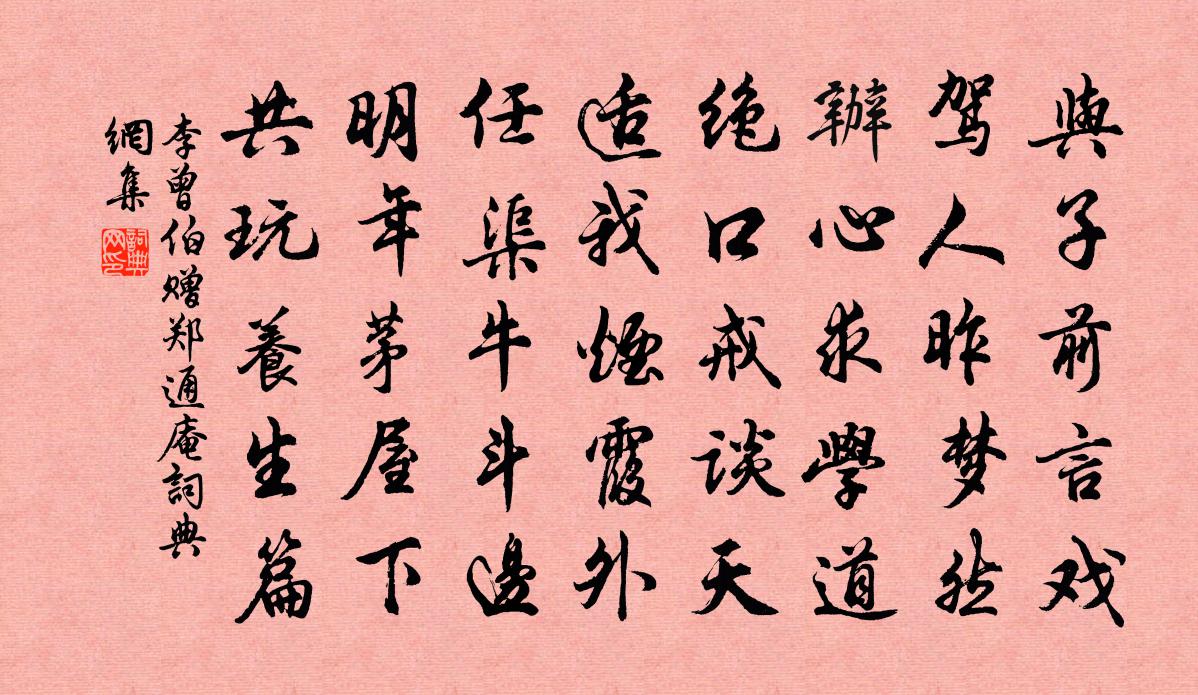 與子前言戏
驾人昨梦然
辦心求學道
绝口戒谈天
适我煙霞外
任渠牛斗邊
明年茅屋下
共玩養生篇
李曾伯赠郑通庵詞典
網集
詞典網印